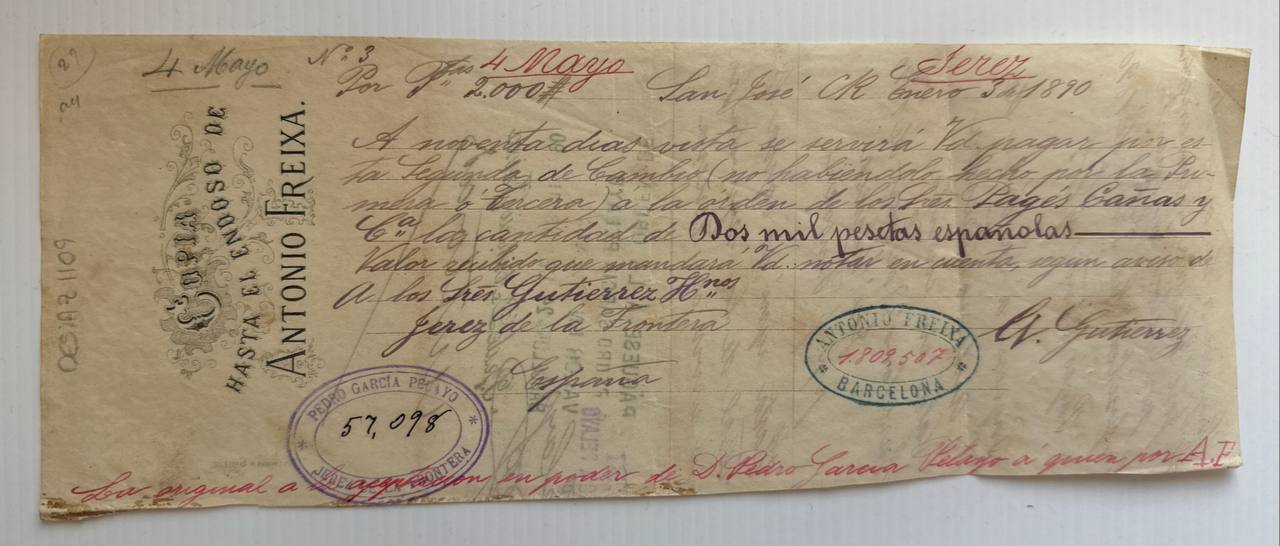 29
24
4 Mayo
OCSIAZ1109
COPIA
HASTA EL ENDOSO DE
ANTONIO FREIXA.
Nº 3
4 Mayo
Jerez
Por Ptas 2.000#
San José CR Enero 3 de 1890
A noventa dias vista se servirá Vd. pagar por es-
ta Segunda de Cambio (no habiéndolo hecho por la Pri-
mera ó Tercera) á la órden de los Sres Pagés Cañas y
Cª la cantidad de Dos mil pesetas españolas
Valor recibido que mandará Vd. notar en cuenta, segun aviso de
A los Sres Gutierrez Hnos
Jerez de la Frontera
España
A. Gutierrez
ANTONIO FREIXA
1.809,507
BARCELONA
PEDRO GARCÍA PELAYO
57,098
JEREZ DE LA FRONTERA
La original a la aceptación en poder de D. Pedro Garcia Pelayo á quien por A.F